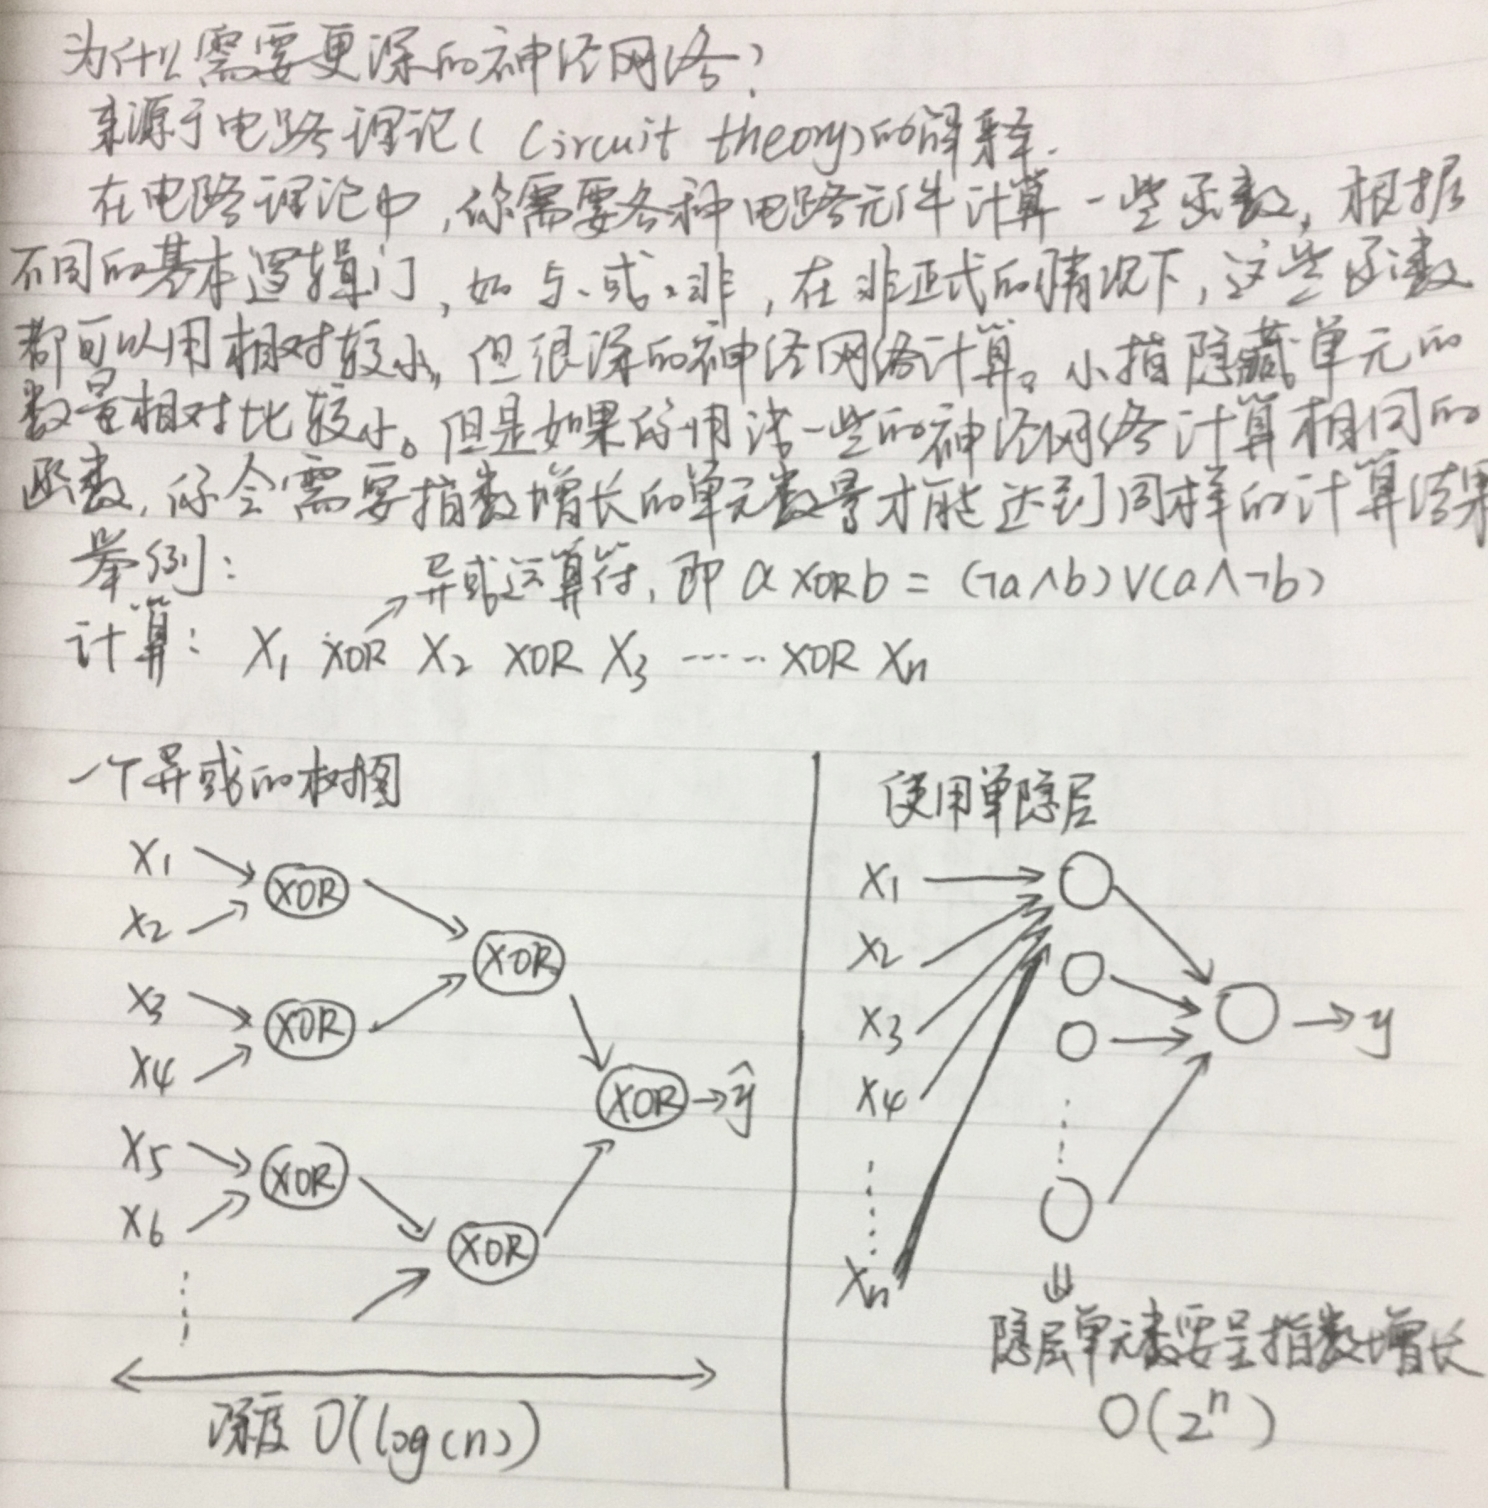 为什么需要更深的神经网络?
来源于电路理论(Circuit theory)的解释.
在电路理论中,你需要各种电路元件计算一些函数,根据
不同的基本逻辑门,如与、或、非,在非正式的情况下,这些函数
都可以用相对较小,但很深的神经网络计算。小指隐藏单元的
数量相对比较小。但是如果你用浅一些的神经网络计算相同的
函数,你会需要指数增长的单元数量才能达到同样的计算结果
举例:
异或运算符,即 a XOR b = (¬a∧b)∨(a∧¬b)
计算: X1 XOR X2 XOR X3 ...... XOR Xn
一个异或的树图
X1
X2
XOR
X3
X4
XOR
XOR
X5
X6
XOR
XOR
XOR
ŷ
深度 O(log(n))
使用单隐层
X1
X2
X3
X4
Xn
y
隐层单元数要呈指数增长
O(2ⁿ)